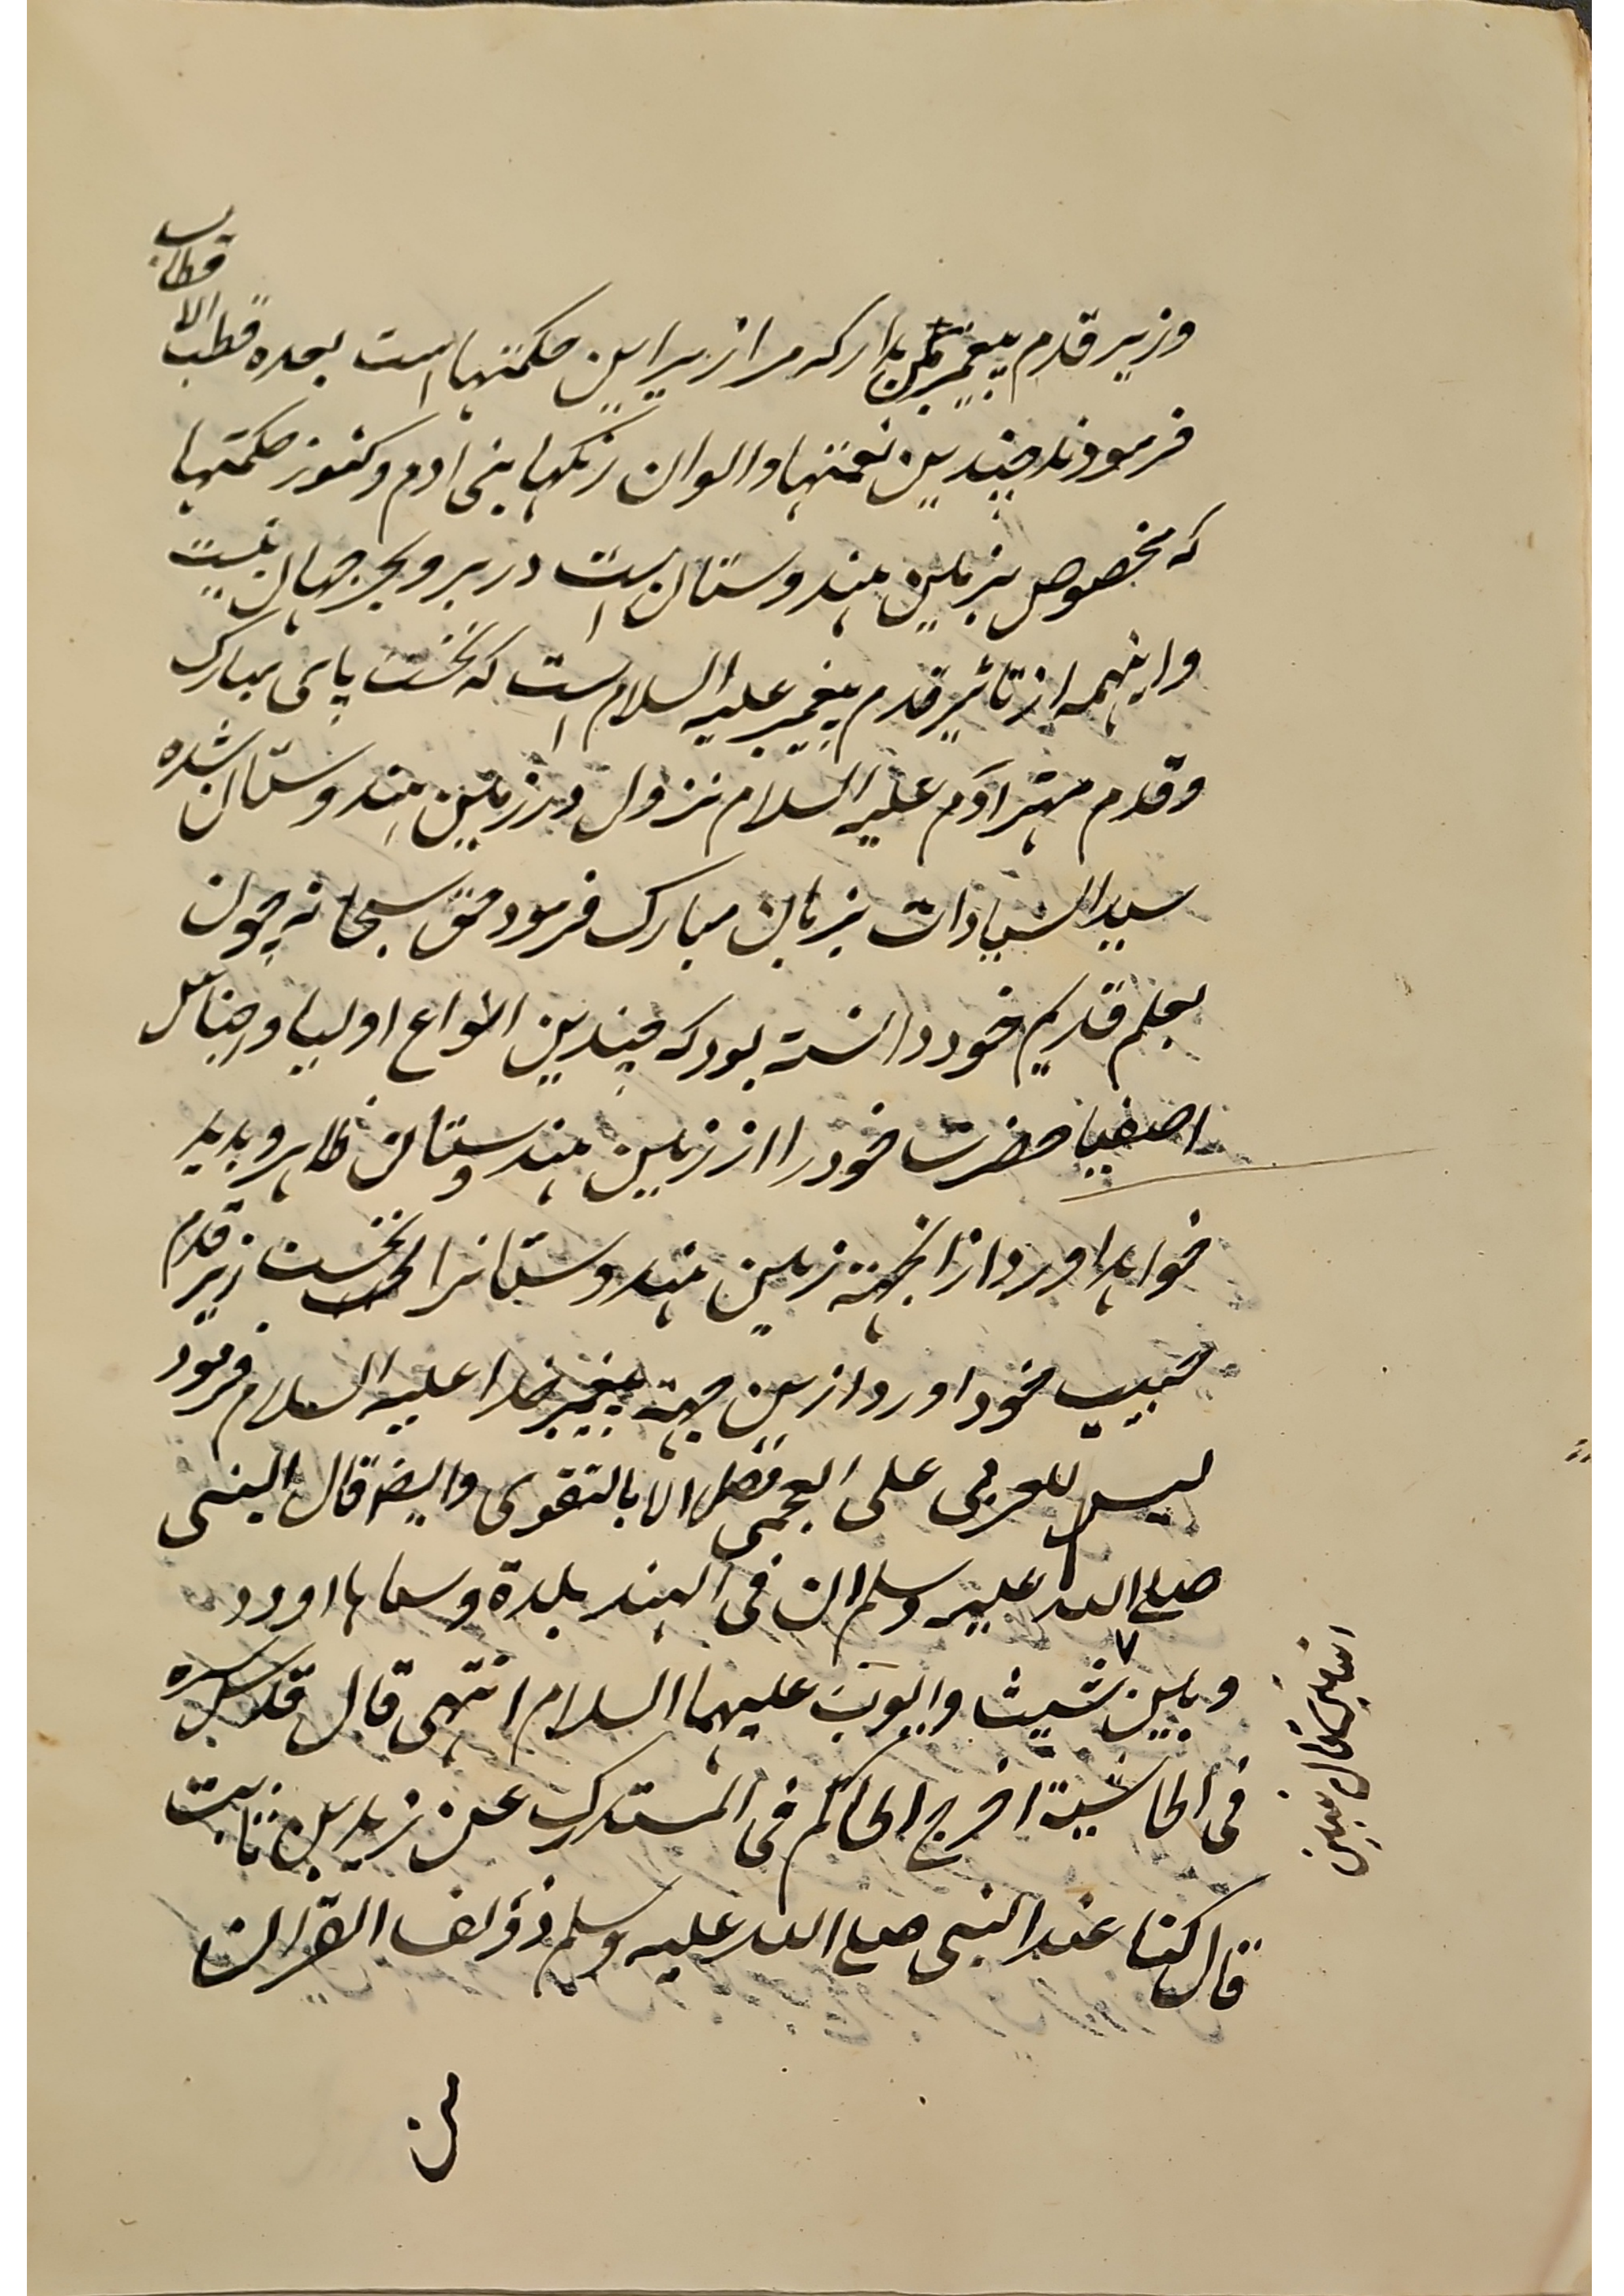 وزیر قدم پیغمبر من بدار که مرا زیر این حکمتهاست بعده قطب الاقطاب
فرمودند چندین نعمتها و الوان رنگها بنی ادم و کنوز حکمتها
که مخصوص بزمین هندوستان است در بر و بحر جهان نیست
و اینهمه از تاثیر قدم پیغمبر علیه السلام است که نخست پای مبارک
و قدم مهتر آدم علیه السلام نزول در زمین هندوستان شده
سید السادات بزبان مبارک فرمود حق سبحانه چون
بعلم قدیم خود دانسته بود که چندین انواع اولیا و
اصفیا حضرت خود را از زمین هندوستان ظاهر و بدید
خواهد اورد ازانجهته زمین هندوستانرا نخست زیر قدم
حبیب خود اورد ازین جهته پیغمبر خدا علیه السلام فرمود
لیس للعربی علی العجمی فضل الا بالتقوی وایضا قال النبی
صلی الله علیه وسلم ان فی الهند بلدة وسماها اودد
وبین شیث وایوب علیهما السلام انتهی قال قدس سره
فی الحاشیة اخرج الحاکم فی المستدرک عن زید بن ثابت
قال کنا عند النبی صلی الله علیه وسلم نؤلف القران
من